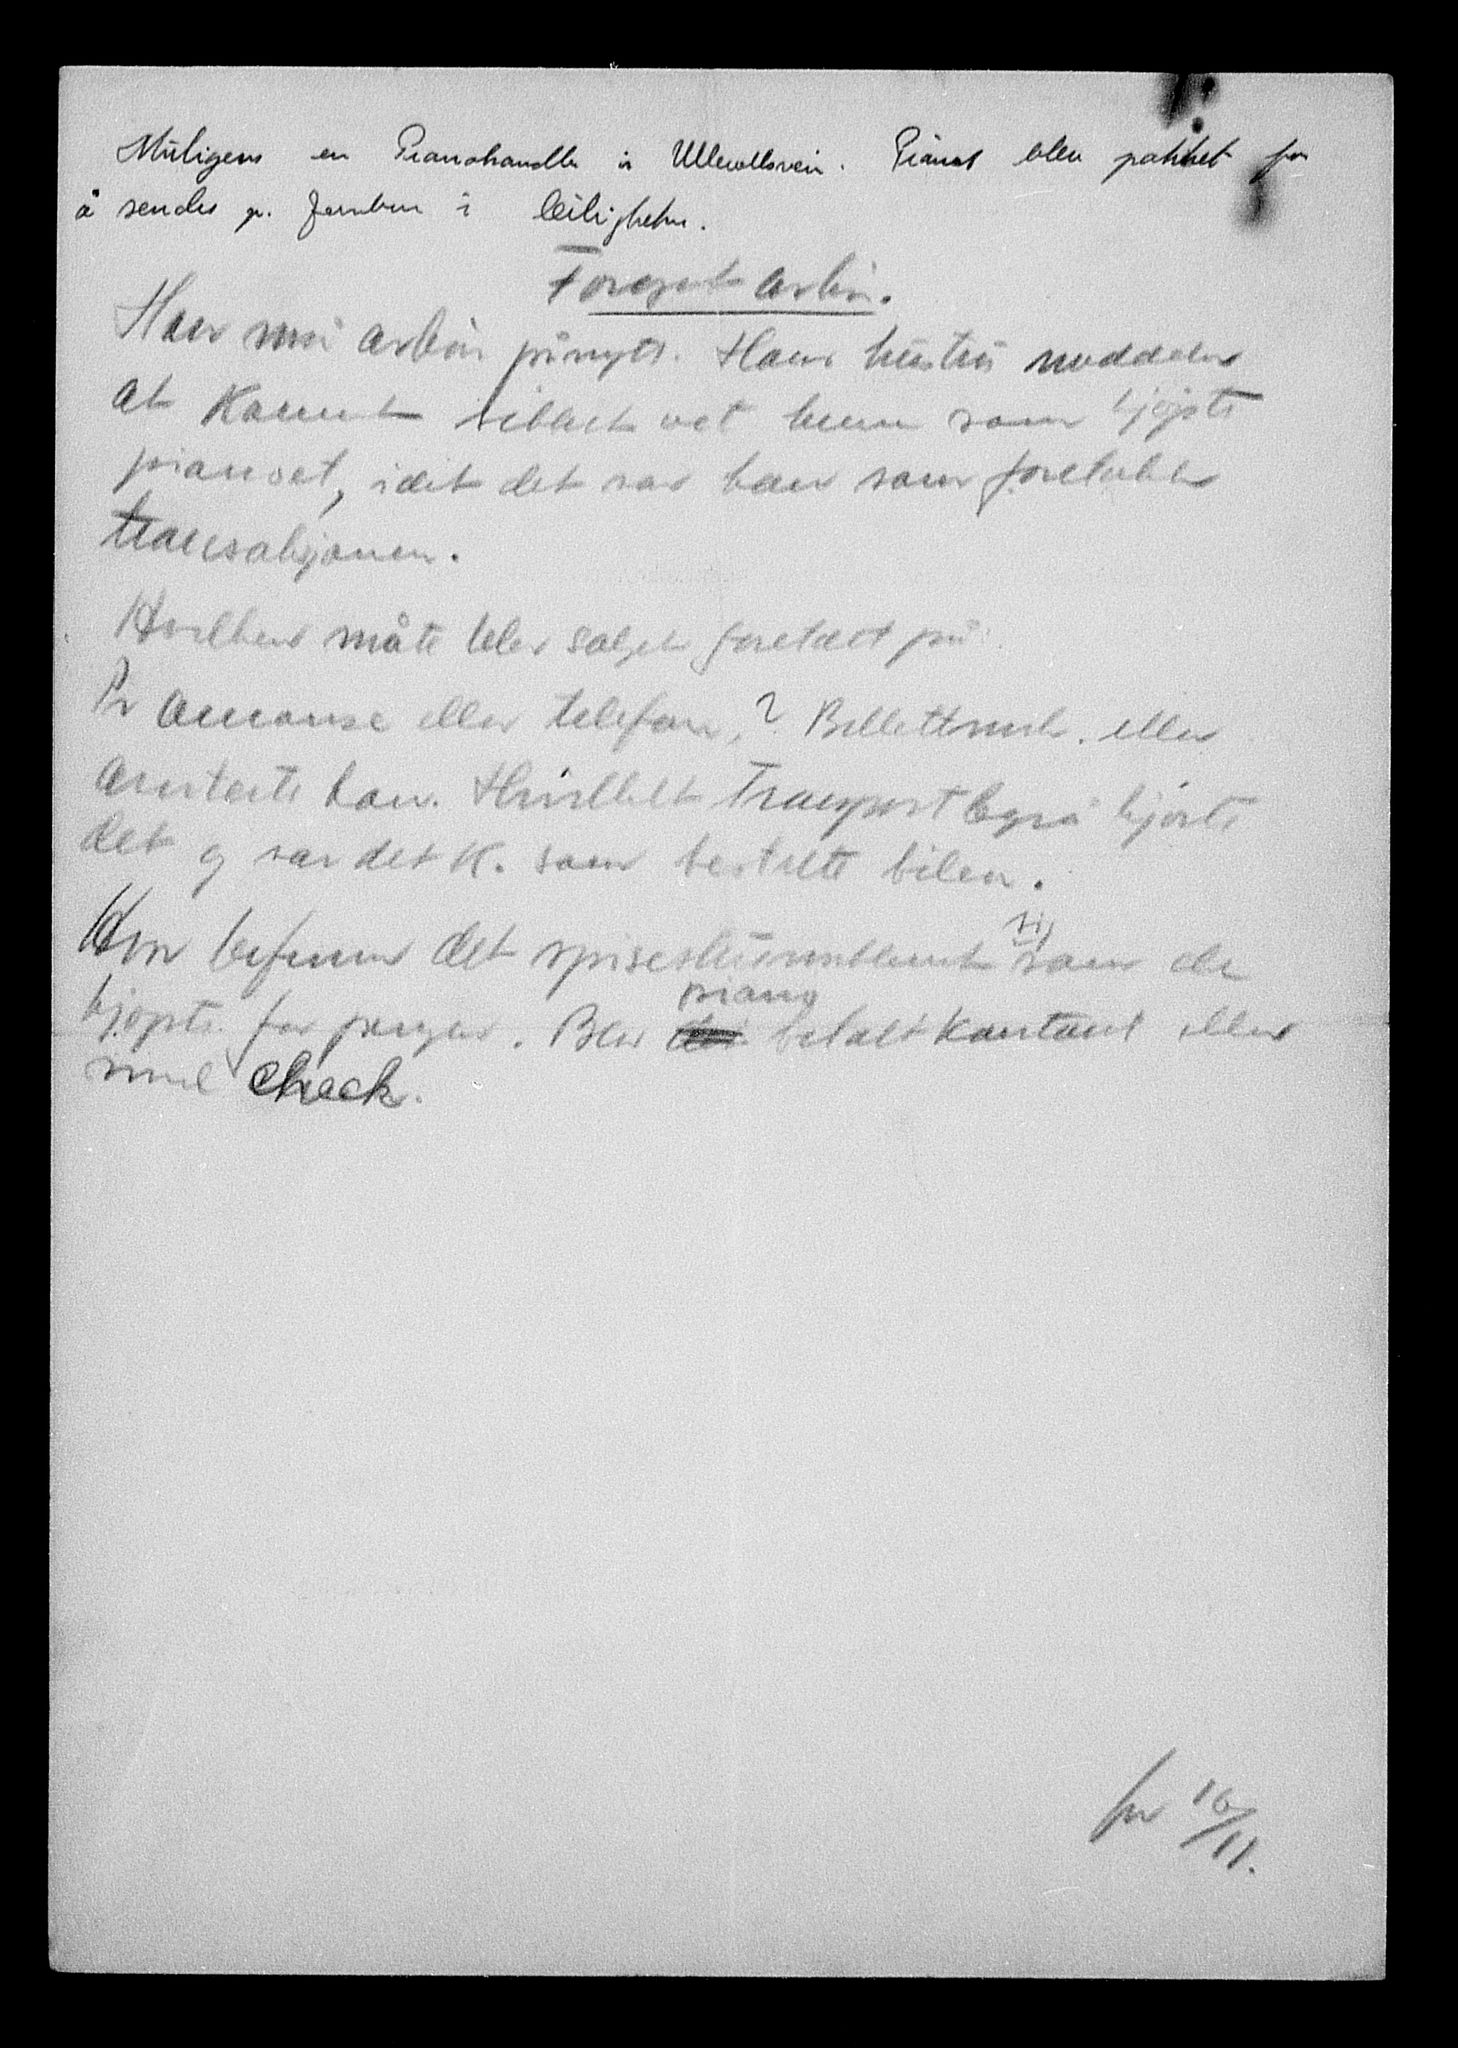 Muligens en Pianohandler i Ullevollsvein. Pianoet blev pakket for
å sendes pr. Jernban i leiligheten.
Foresp. arkiv.
Han må avhøres pånytt. Hans hustru meddeler
at Kamut sikkert vet hvem som kjøpte
pianoet, idet det var han som foretok
transaksjonen.
Hvilken måte blev salget foretatt på
Pr annonse eller telefon, ? Billettmrk. eller
averterte han. Hvilket Transportbyrå kjørte
det og var det K. som bestilte bilen.
Hvor befinner det spisestuemøblement som de
kjøpte for penger. Blev piano betalt kontant eller
med check.
16/11.